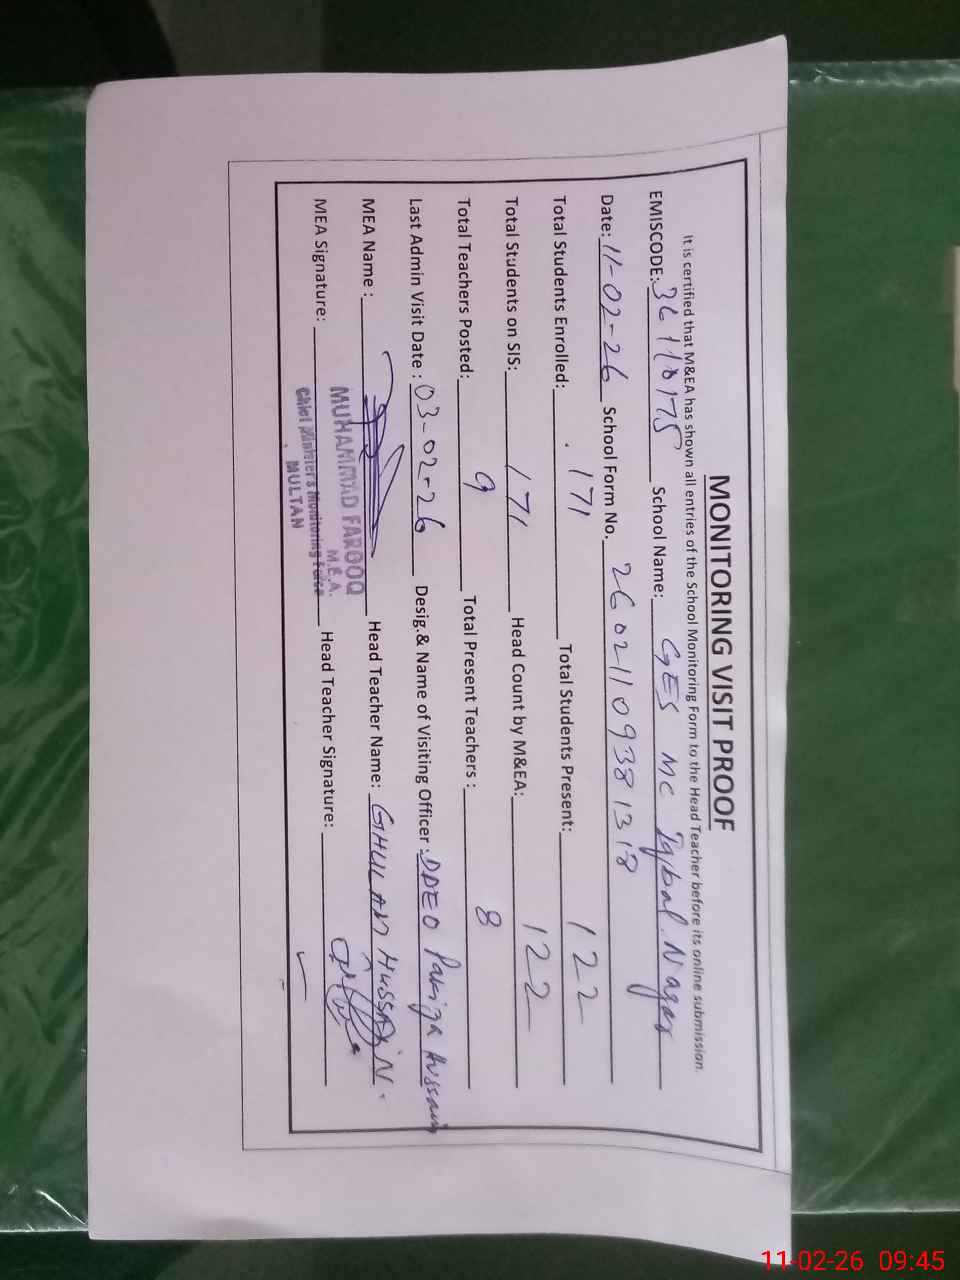 MONITORING VISIT PROOF
It is certified that M&EA has shown all entries of the School Monitoring Form to the Head Teacher before its online submission.
EMISCODE: School Name: GES MC Iqbal Nagar
Date: 11-02-26 School Form No. 26021109381318
Total Students Enrolled: 171 Total Students Present: 122
Total Students on SIS: 171 Head Count by M&EA: 122
Total Teachers Posted: 9 Total Present Teachers : 8
Last Admin Visit Date : 03-02-26 Desig.& Name of Visiting Officer : DDEO Hussain
MEA Name : Head Teacher Name: GHULAM HUSSAIN.
MUHAMMAD FAROOQ
M.E.A.
MEA Signature: Head Teacher Signature:
Chief Minister's Monitoring Force
MULTAN
11-02-26 09:45